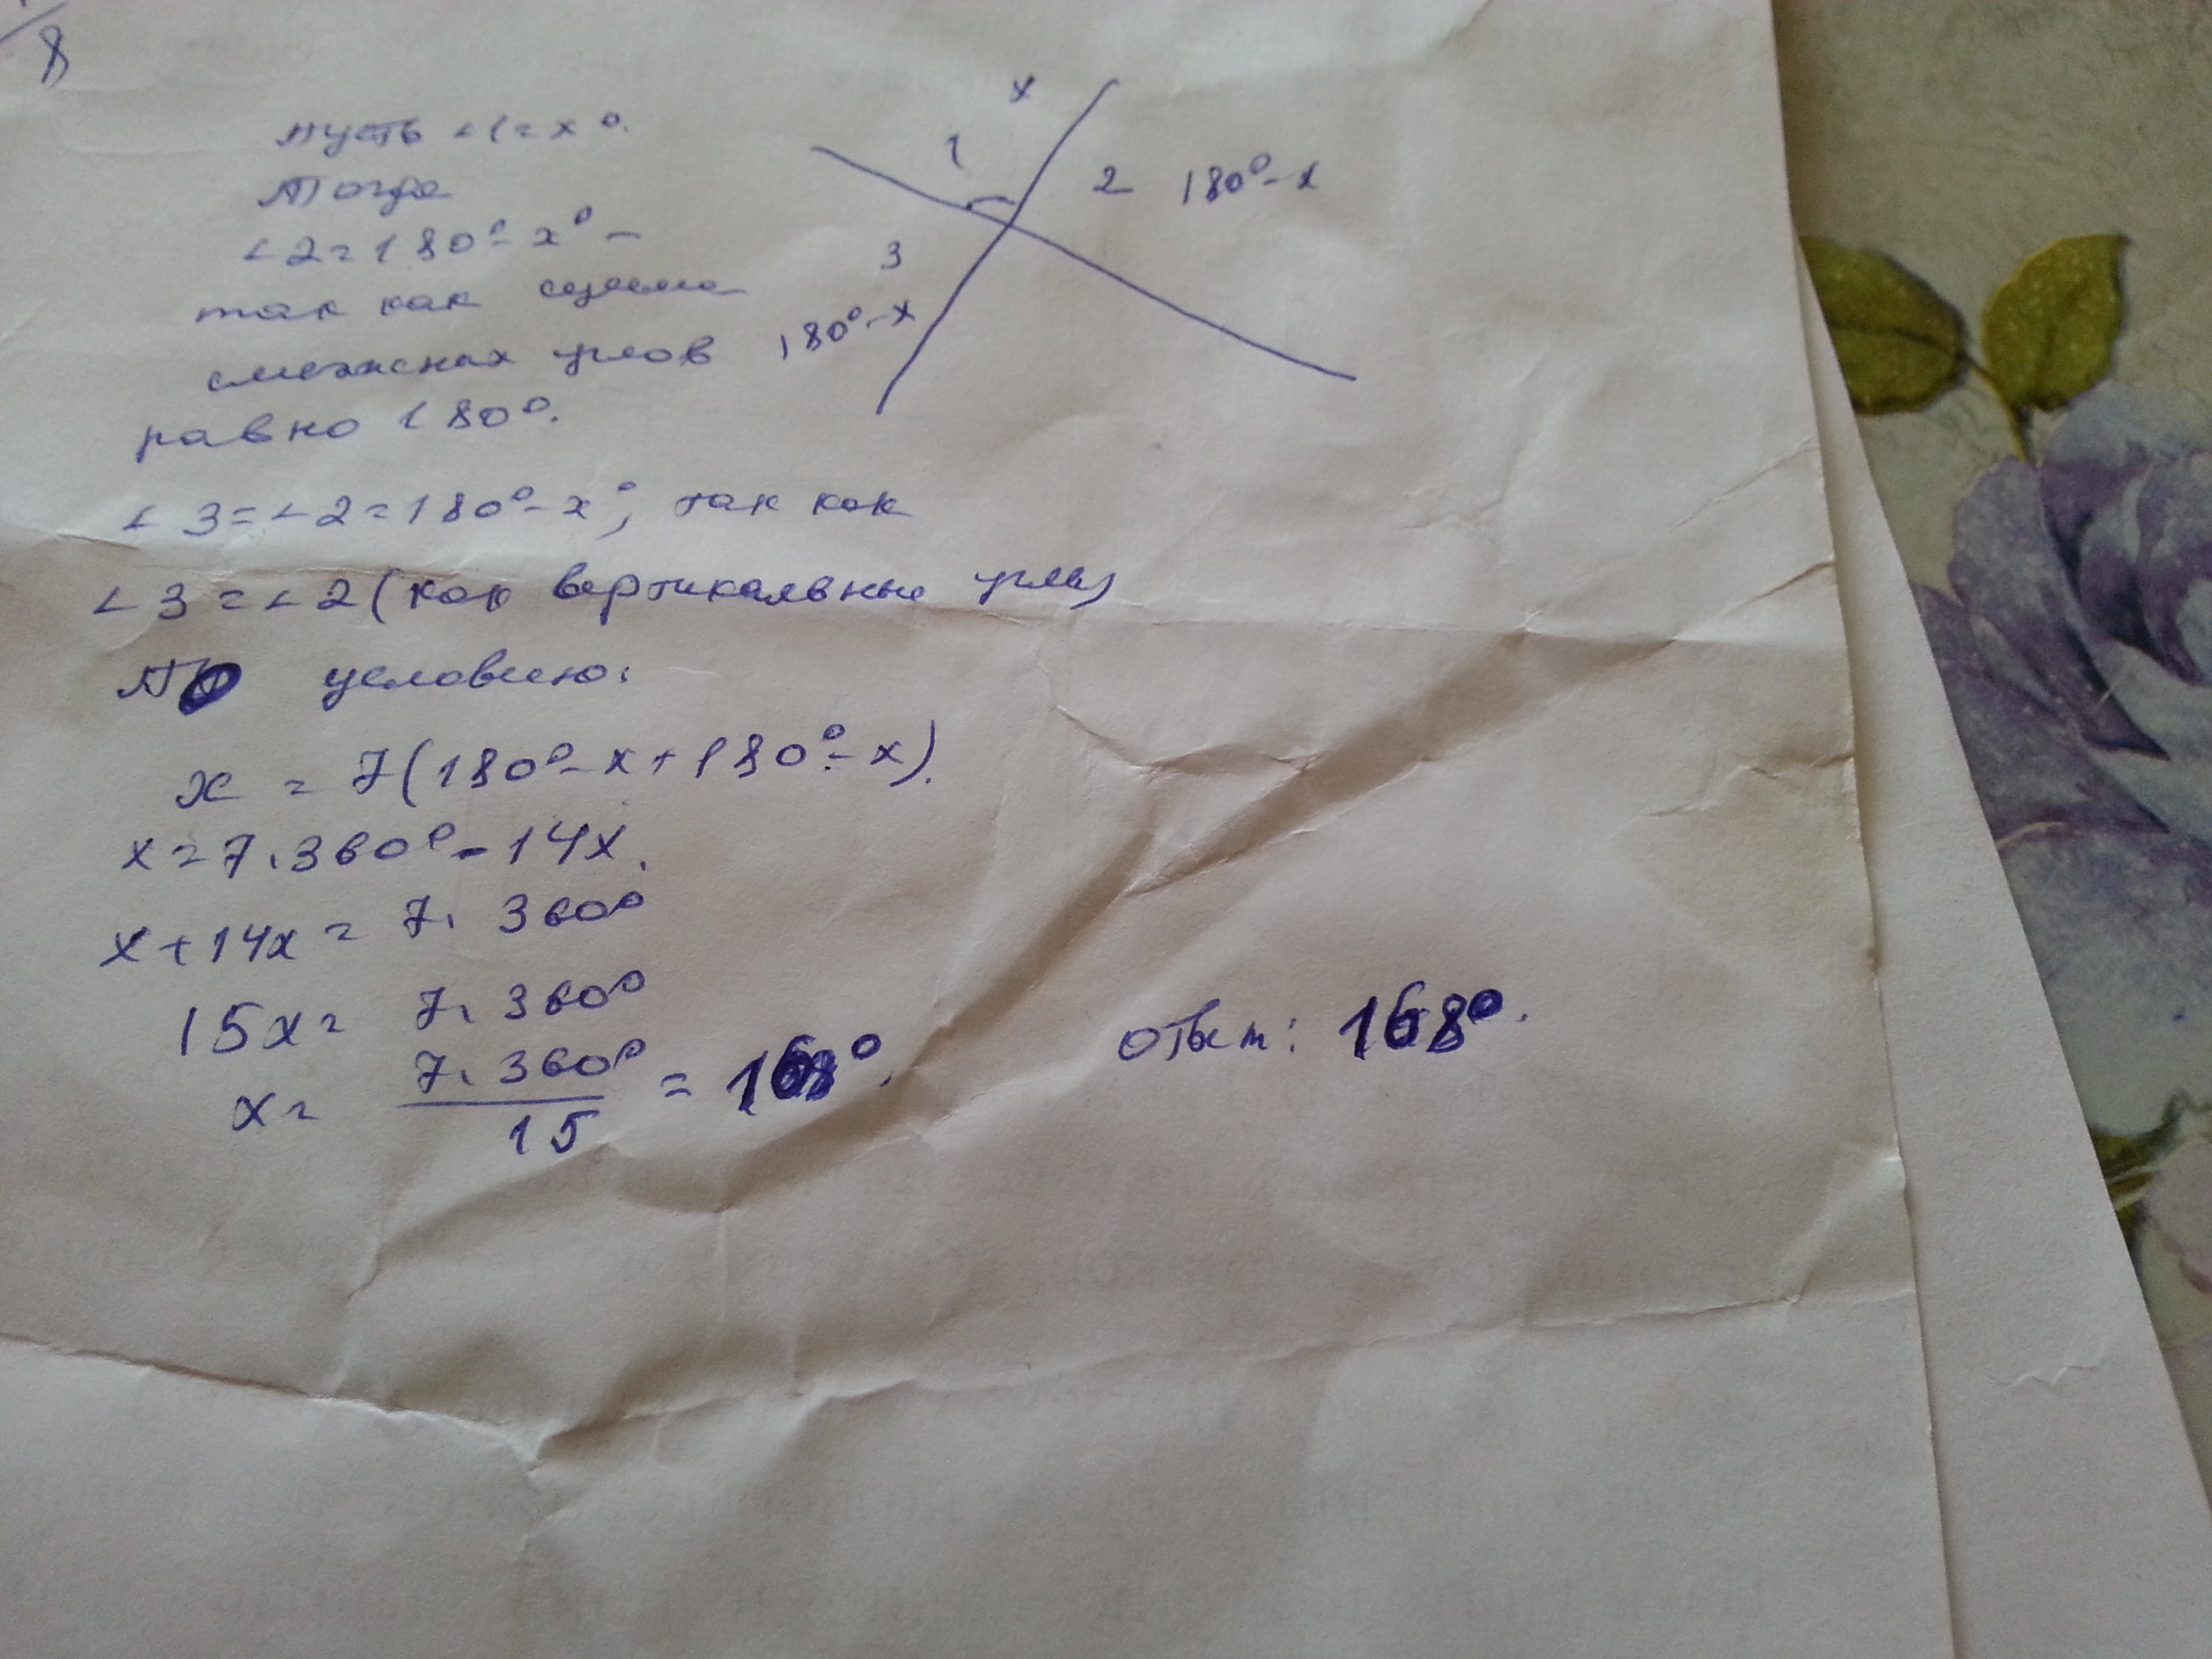 8
пусть ∠1=x°.
Тогда
∠2=180°-x°-
так как сумма
смежных углов
равно 180°.
x
1
2 180°-x
3
180°-x
∠3=∠2=180°-x°, так как
∠3=∠2(как вертикальные углы)
По условию:
x = 7(180°-x+180°-x).
x=7.360°-14x.
x+14x= 7. 360°
15x= 7. 360°
x= 7. 360° / 15 = 168°.
ответ: 168°.